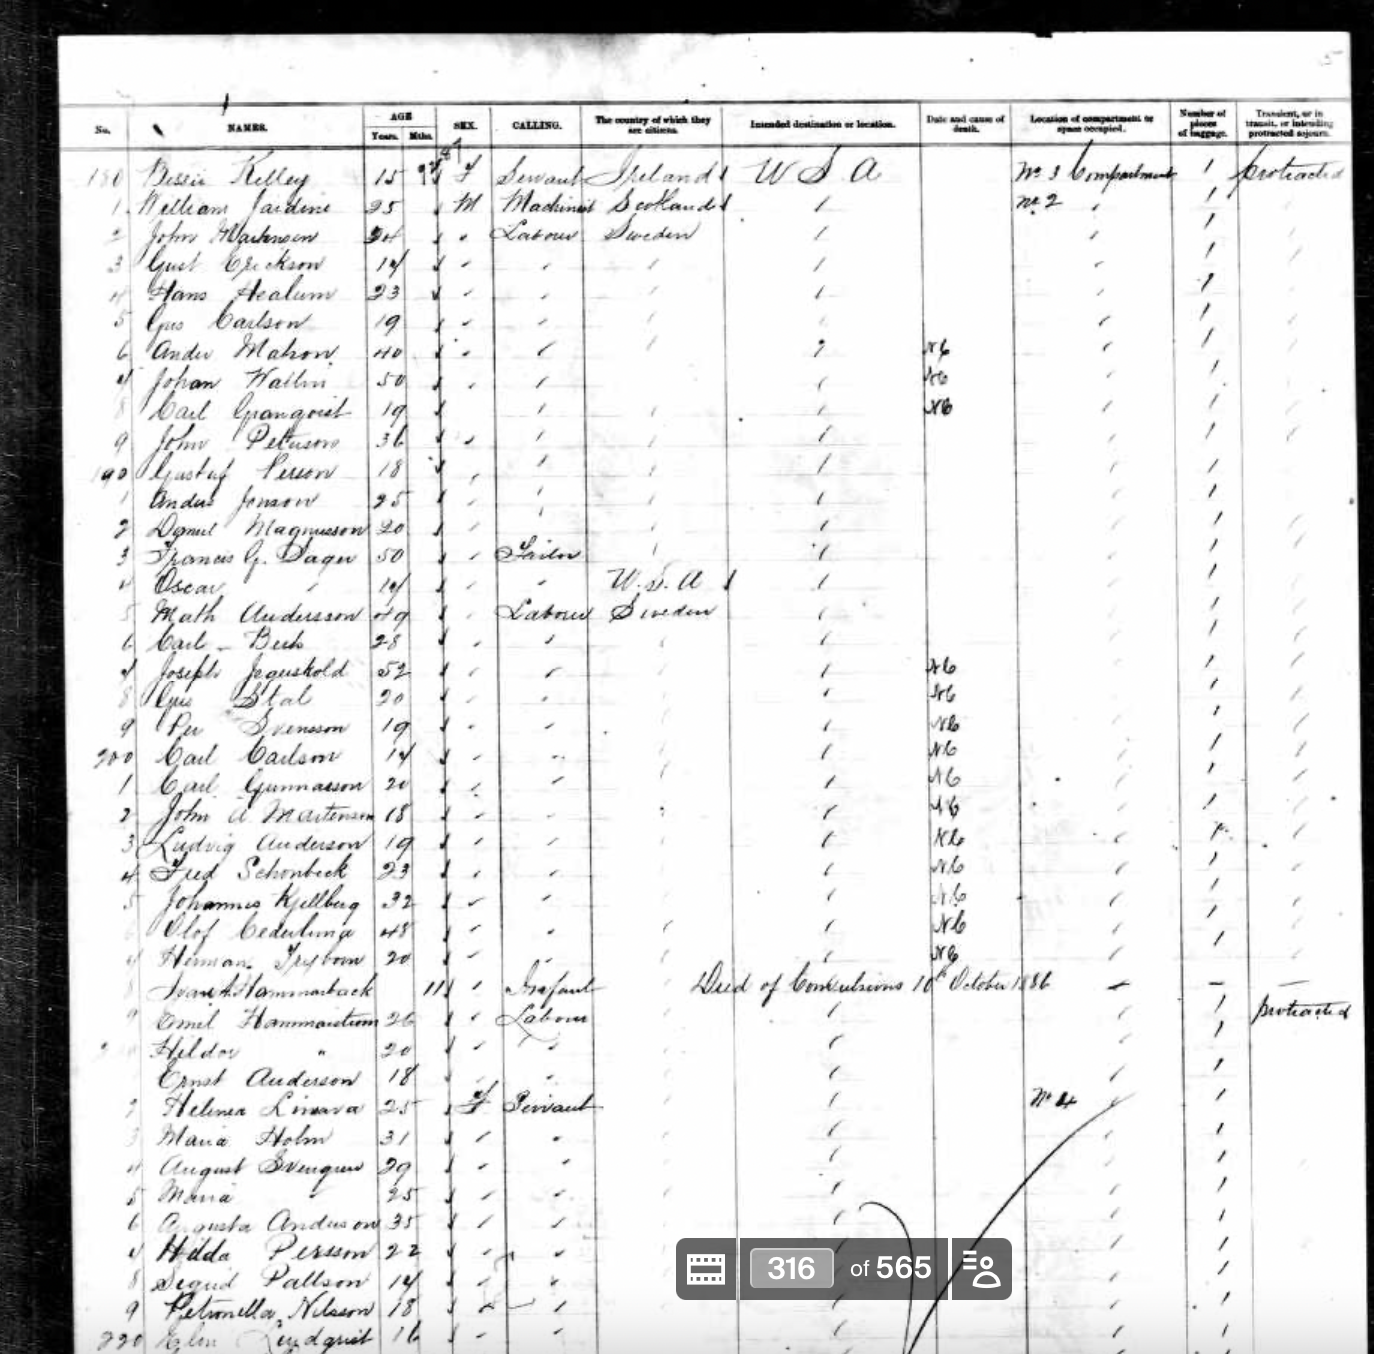 5
No. NAMES. AGE Years. Mths. SEX. CALLING. The country of which they are citizens. Intended destination or location. Date and cause of death. Location of compartment or space occupied. Number of pieces of baggage. Transient, or in transit, or intending protracted sojourn.
180 Bessie Kelley 15 F Servant Ireland U S A No 3 Compartment 1 protracted
1 William Jardine 25 M Machinist Scotland No 2
2 John 24 Labour Sweden
3 Gust Erickson 14
4 Hans 23
5 Gus Carlson 19
6 Ander 40 NC
7 Johan Wallin 50 NC
8 Carl Granqvist 19 NC
9 John Peterson 36
190 Gustaf Person 18
1 Anders Jonson 25
2 Daniel Magnusson 20
3 Francis G. Sager 50 Tailor
4 Oscar " 14 U.S.A
5 Math Andersson 49 Labour Sweden
6 Carl 28
7 Joseph 52 NC
8 Gus Stal 20 NC
9 Per Svensson 19 NC
200 Carl Carlson 14 NC
1 Carl Gunnarson 20 NC
2 John A Martenson 18 NC
3 Ludvig Anderson 19 NC
4 Fred Schonbeck 23 NC
5 Johannes Kjellberg 32 NC
6 Olof 48 NC
7 Herman 20 NC
8 Hammarback 11 Infant Died of Convulsions 10th October 1886
9 Emil 26 Labour protracted
Hildor " 20
Ernst Anderson 18
2 Helena 25 F Servant No 4
3 Maria Holm 31
4 August 29
5 Maria 25
6 Augusta Anderson 35
7 Hilda Persson 22
8 Segrid Pallson 14
9 Petronella Nilsson 18
220 Lindqvist 16
316 of 565